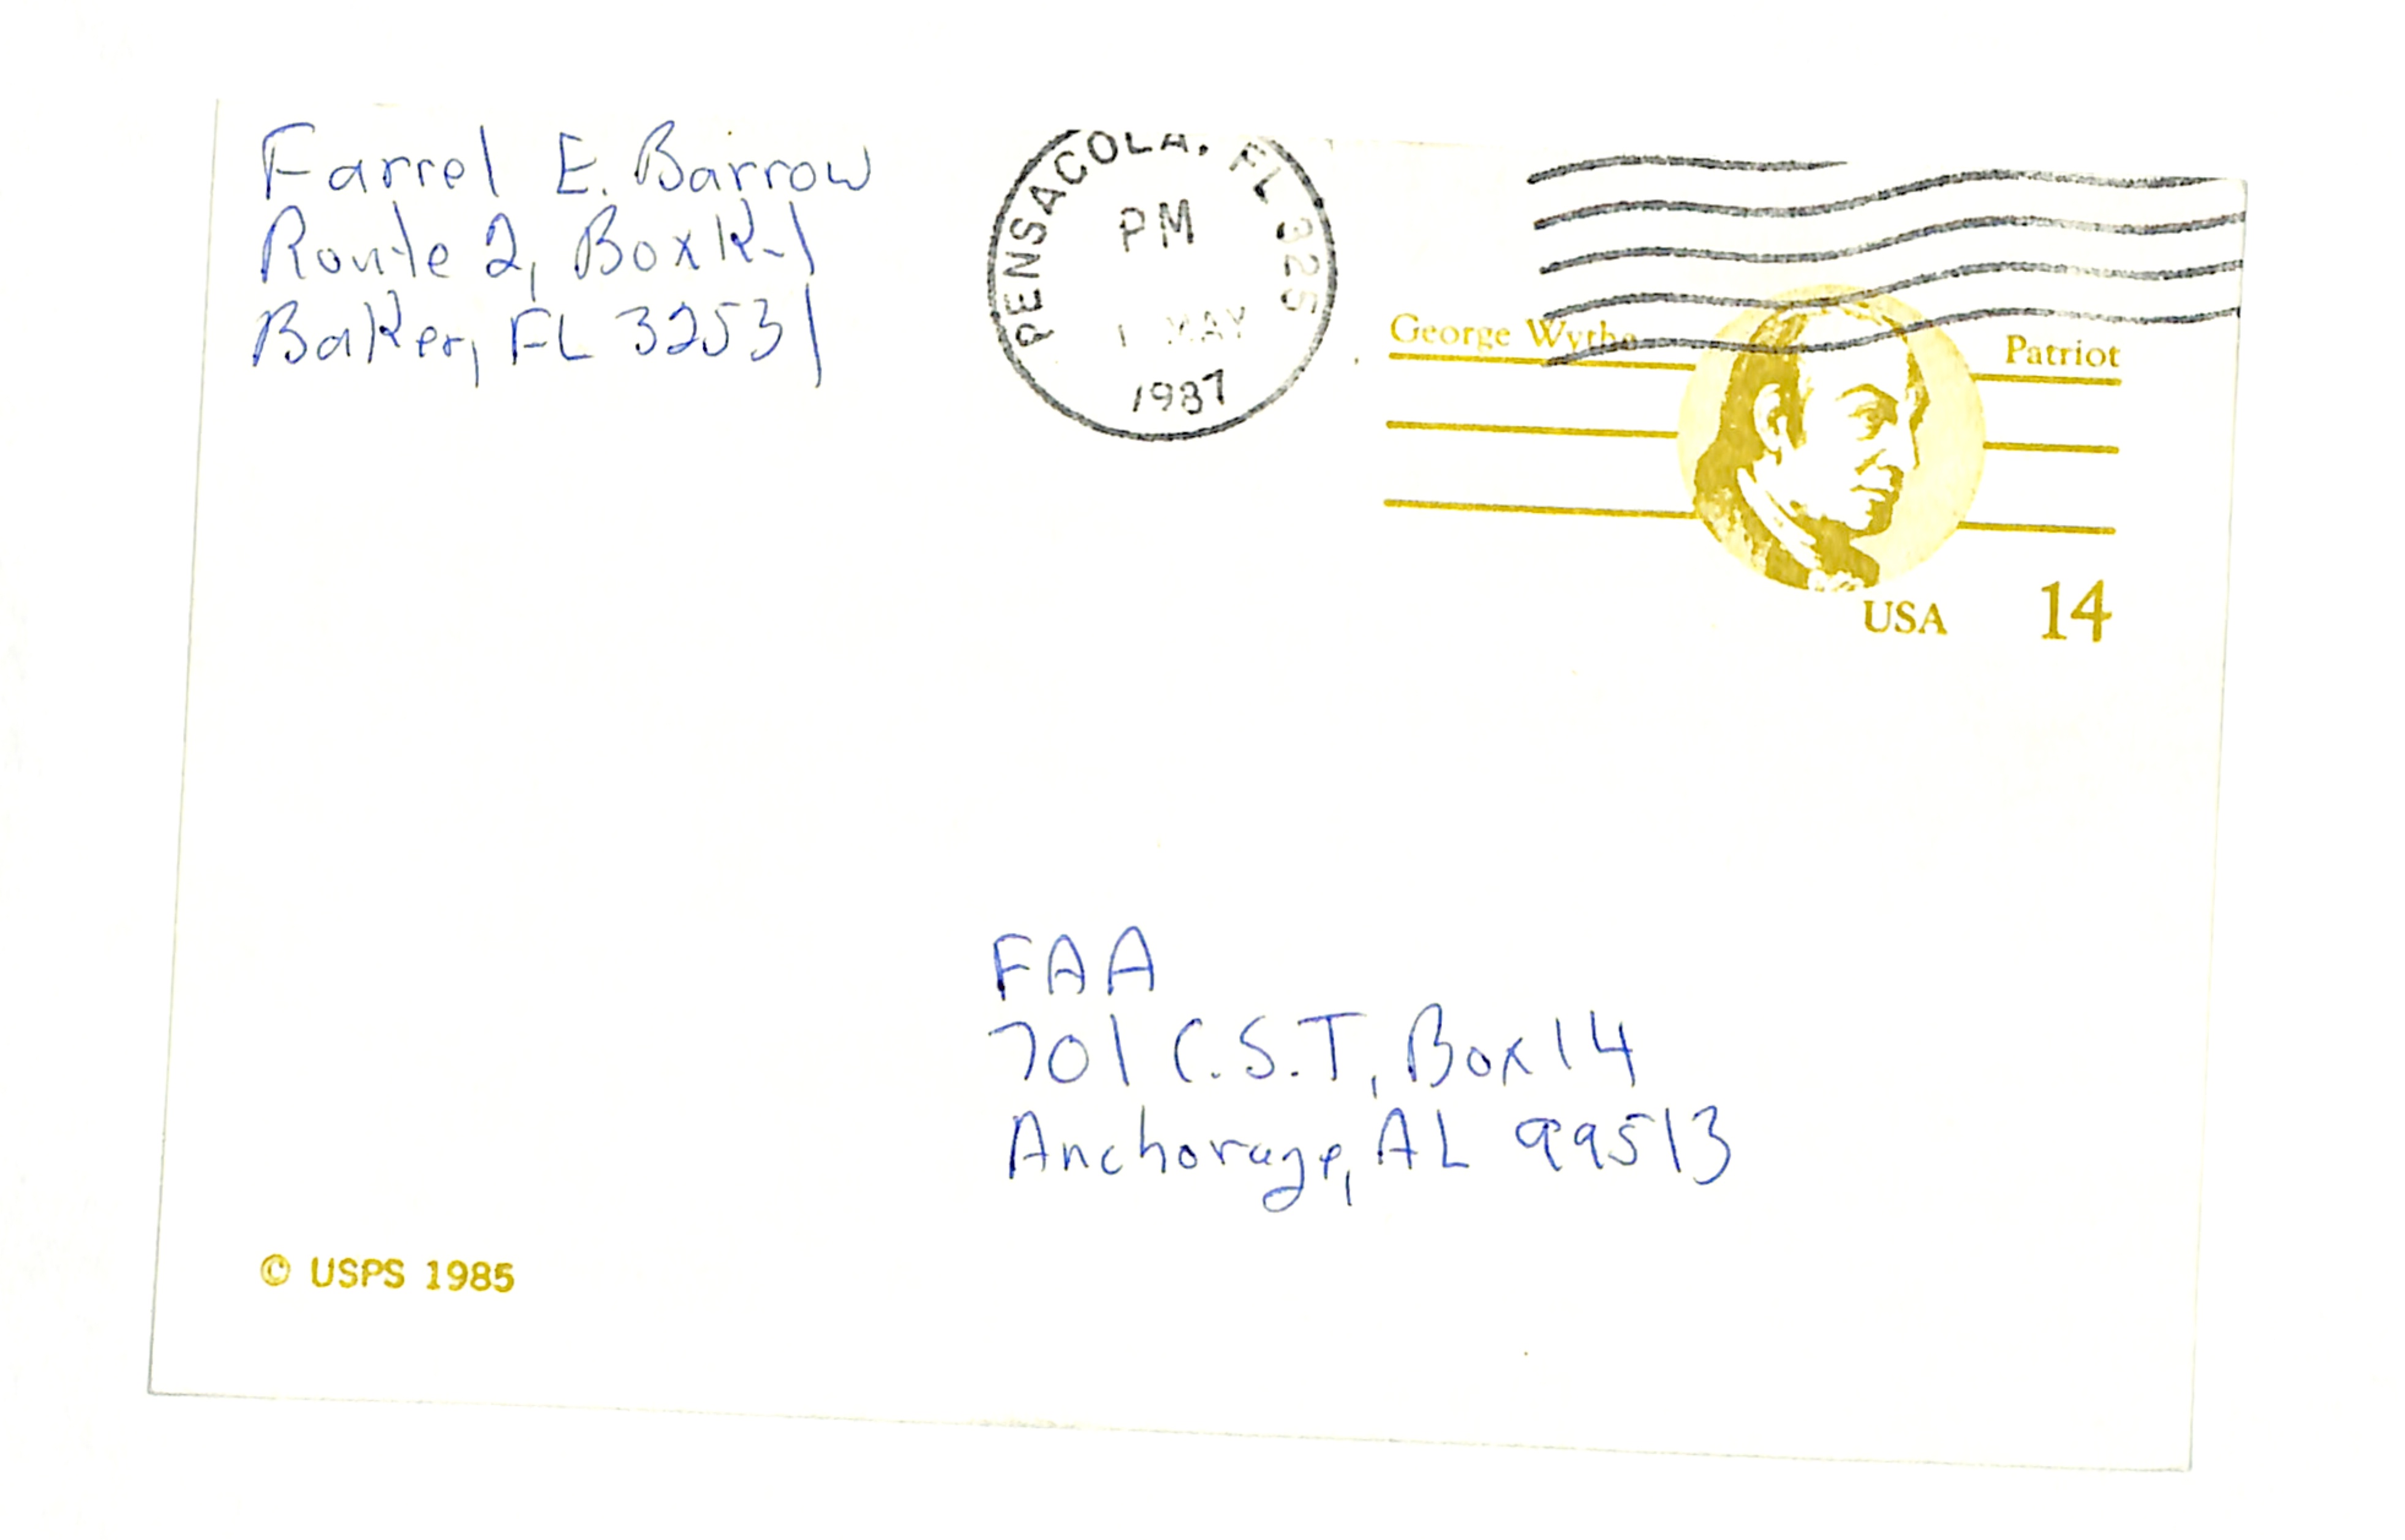 Farrel E. Barrow
Route 2, Box K-1
Baker, FL 32531
PENSACOLA, FL 325
PM
1 MAY
1987
George Wythe
Patriot
USA 14
FAA
701 C.S.T, Box 14
Anchorage, AL 99513
© USPS 1985